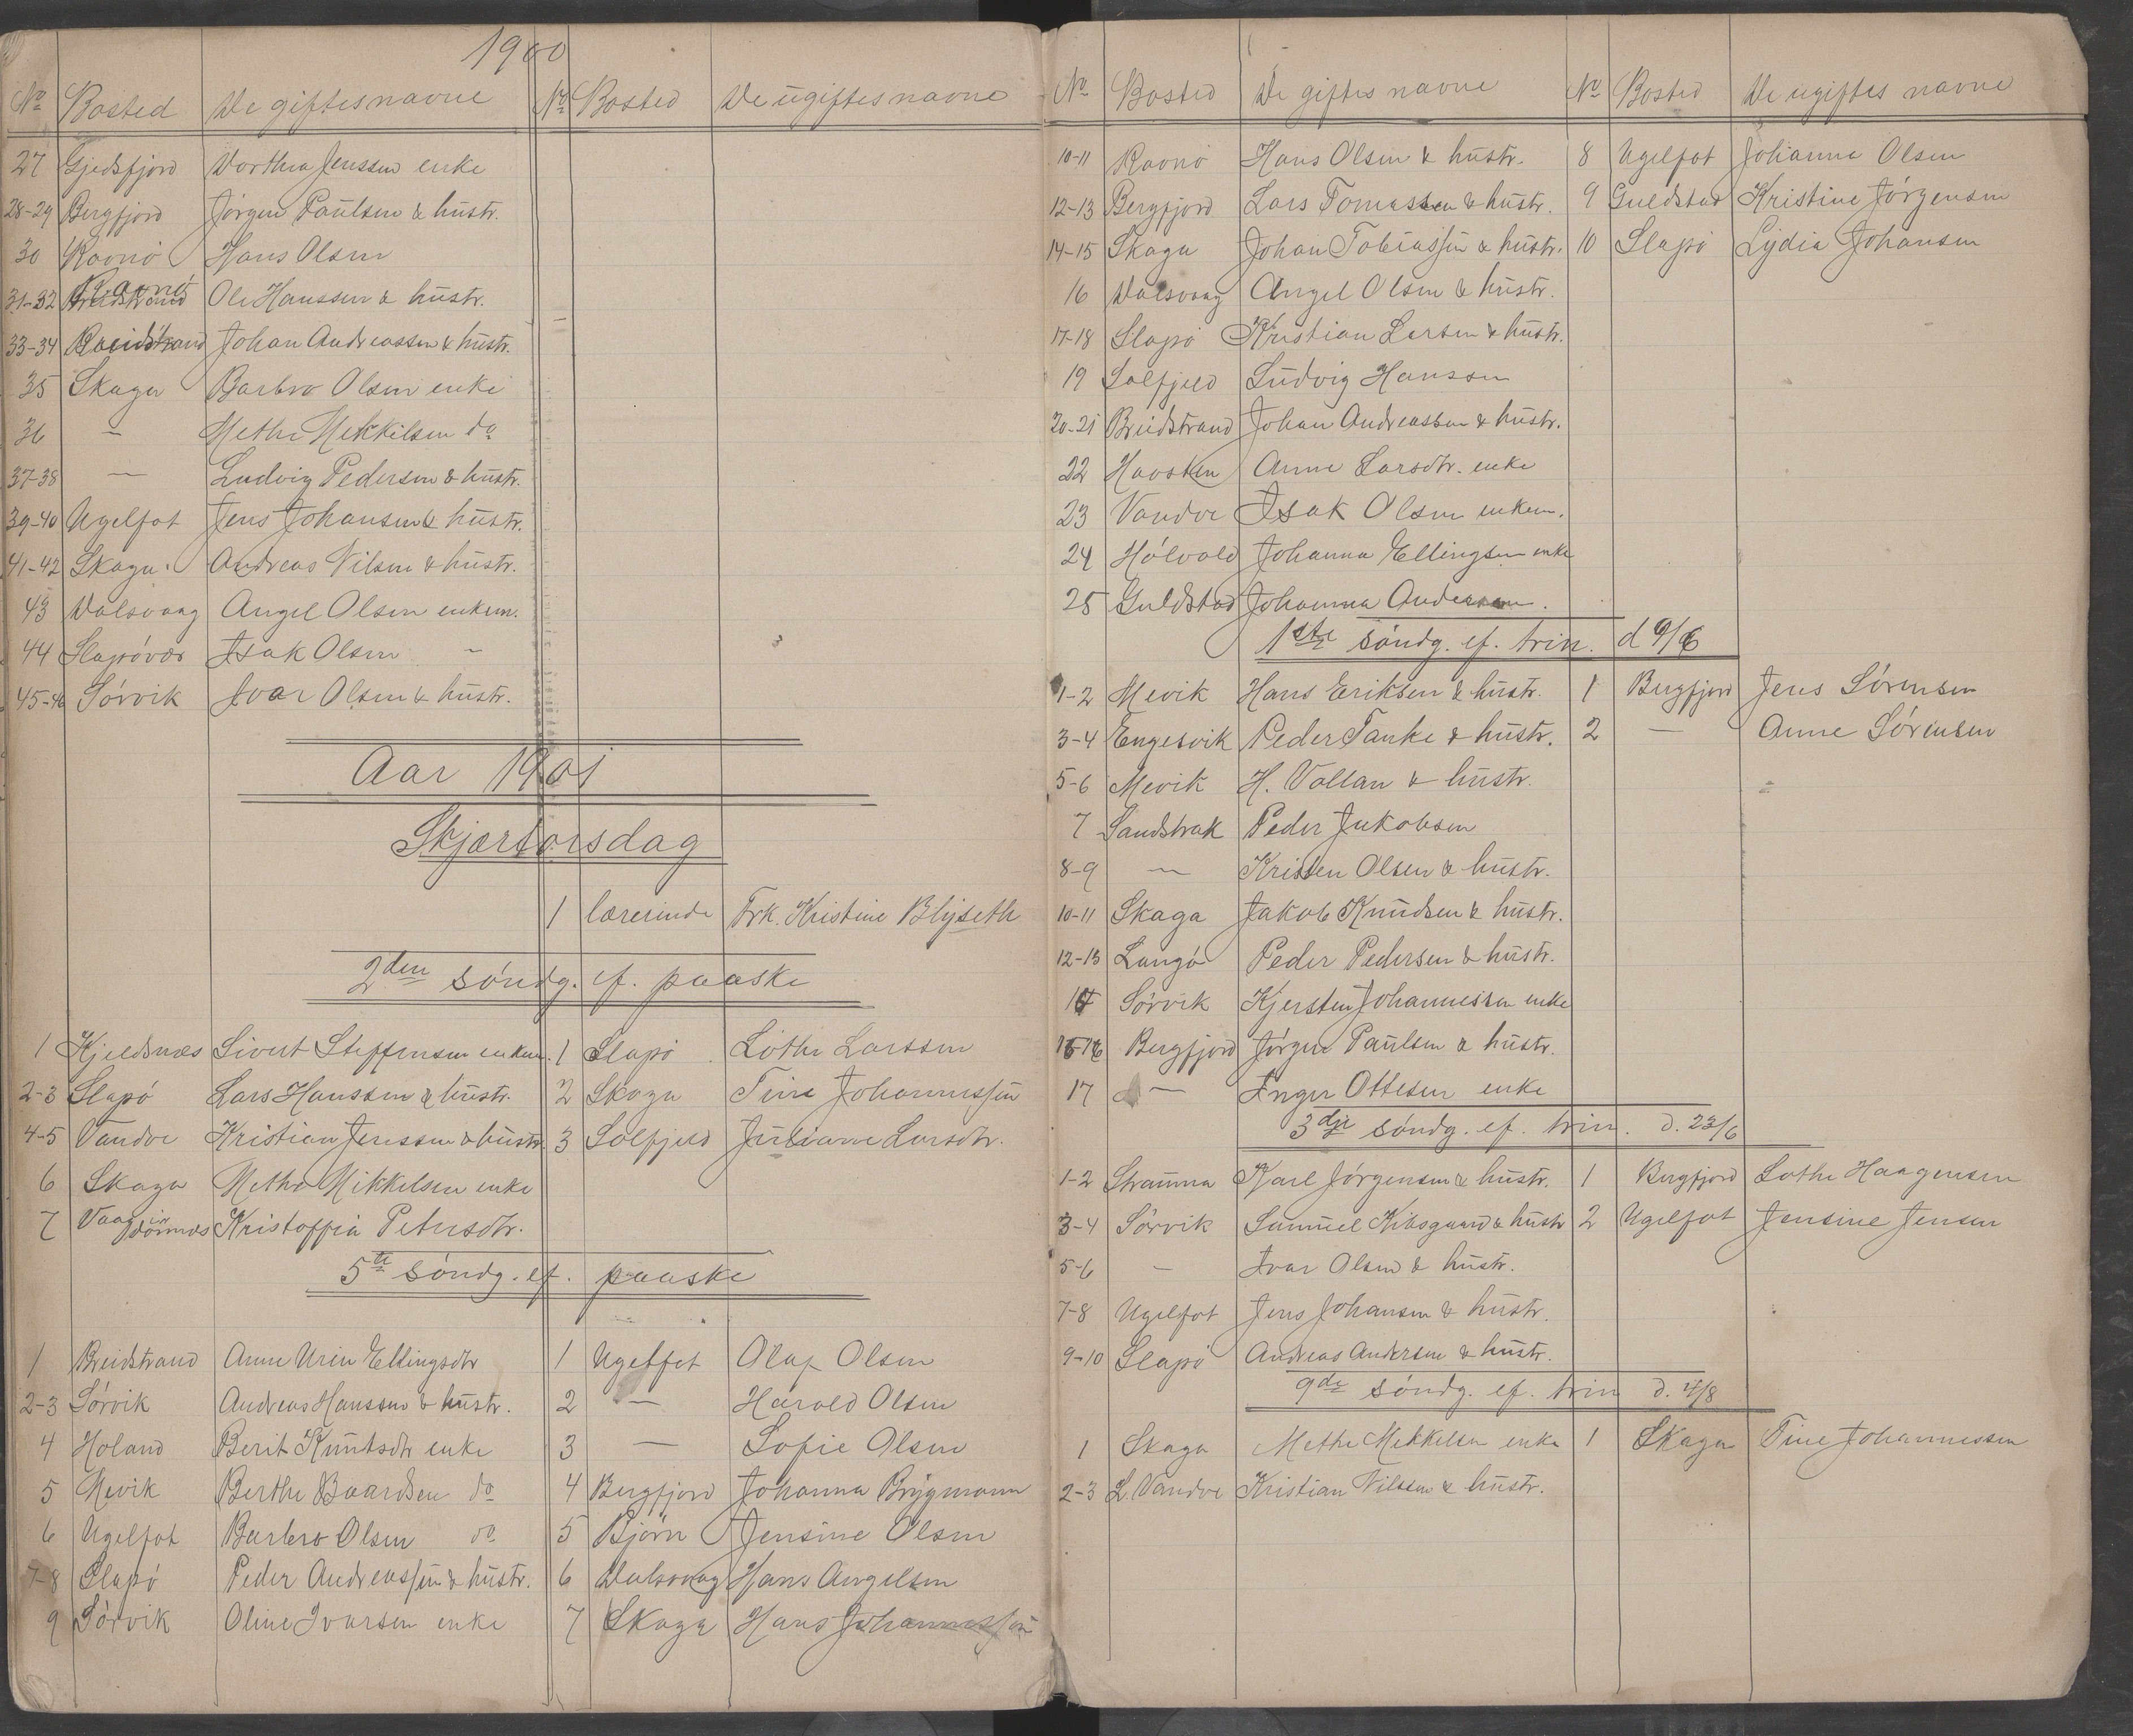 1900
No Bosted De giftes navne No Bosted De ugiftes navne
27 Gjedsfjord Dorthea Jenssen enke
28-29 Bergfjord Jörgen Paulsen & hustr.
30 Ravnö Hans Olsen
Ravnö
31-32 Breidstrand Ole Hanssen & hustr.
33-34 Breidstrand Johan Andreassen & hustr.
35 Skaga Barbro Olsen enke
36 — Methe Mekkelsen do
37-38 — Ludvig Pedersen & hustr.
39-40 Ugelfot Jens Johansen & hustr.
41-42 Skaga Andreas Nilsen & hustr.
43 Valsvaag Angel Olsen enkem.
44 Slapövær Isak Olsen —
45-46 Sörvik Ivar Olsen & hustr.
Aar 1901
Skjærtorsdag
1 lærerinde Frk. Kristine Blyseth
2den söndg. ef. paaske
1 Kjeldsnæs Sivert Steffensen enkem. 1 Slapö Lothe Larssen
2-3 Slapö Lars Hanssen & hustr. 2 Skaga Tine Johannessen
4-5 Vandve Kristian Jenssen & hustr. 3 Solfjeld Juliane Larsdtr.
6 Skaga Methe Mikkelsen enke
7 Kristoffia Petersdtr.
5te söndg. ef. paaske
1 Breidstrand Anne Urin Ellingsdtr 1 Ugelfot Olaf Olsen
2-3 Sörvik Andreas Hanssen & hustr. 2 — Harald Olsen
4 Holand Berit Knutsdtr enke 3 — Sofie Olsen
5 Mevik Berthe Baardsen do 4 Bergfjord Johanna Brygmann
6 Ugelfot Barbro Olsen do 5 Björn Jensine Olsen
7-8 Slapö Peder Andreassen & hustr. 6 Valsvaag Hans Angelsen
9 Sörvik Oline Ivarsen enke 7 Skaga Hans Johannessen
No Bosted De giftes navne No Bosted De ugiftes navne
10-11 Ravnö Hans Olsen & hustr. 8 Ugelfot Johanna Olsen
12-13 Bergfjord Lars Tomassen & hustr. 9 Guldstad Kristine Jörgensen
14-15 Skaga Johan Tobiassen & hustr. 10 Slapö Lydia Johansen
16 Valsvaag Angel Olsen & hustr.
17-18 Slapö Kristian Larsen & hustr.
19 Solfjeld Ludvig Hanssen
20-21 Breidstrand Johan Andreassen & hustr.
22 Havsten Anne Larsdtr. enke
23 Vandve Isak Olsen enkem.
24 Hölvold Johanna Ellingsen enke
25 Guldstad Johanna Andersen.
1ste söndg. ef. trin. d 9/6
1-2 Mevik Hans Eriksen & hustr. 1 Bergfjord Jens Sörensen
3-4 Engesvik Peder Tanke & hustr. 2 — Anne Sörensen
5-6 Mevik H. Vollan & hustr.
7 Sandstrak Peder Jakobsen
8-9 — Kristen Olsen & hustr.
10-11 Skaga Jakob Knudsen & hustr.
12-13 Langö Peder Pedersen & hustr.
14 Sörvik Kjersten Johannessen enke
15-16 Bergfjord Jörgen Paulsen & hustr.
17 — Inger Ottesen enke
3dje söndg. ef. trin. d. 23/6
1-2 Stramna Karl Jörgensen & hustr. 1 Bergfjord Lothe Haagensen
3-4 Sörvik Samuel Kibsgaard & hustr 2 Ugelfot Jensine Jensen
5-6 — Ivar Olsen & hustr.
7-8 Ugelfot Jens Johansen & hustr.
9-10 Slapö Andreas Andersen & hustr.
9de söndg. ef. trin d. 4/8
1 Skaga Methe Mekkelsen enke 1 Skaga Tine Johannessen
2-3 L. Vandve Kristian Nilssen & hustr.